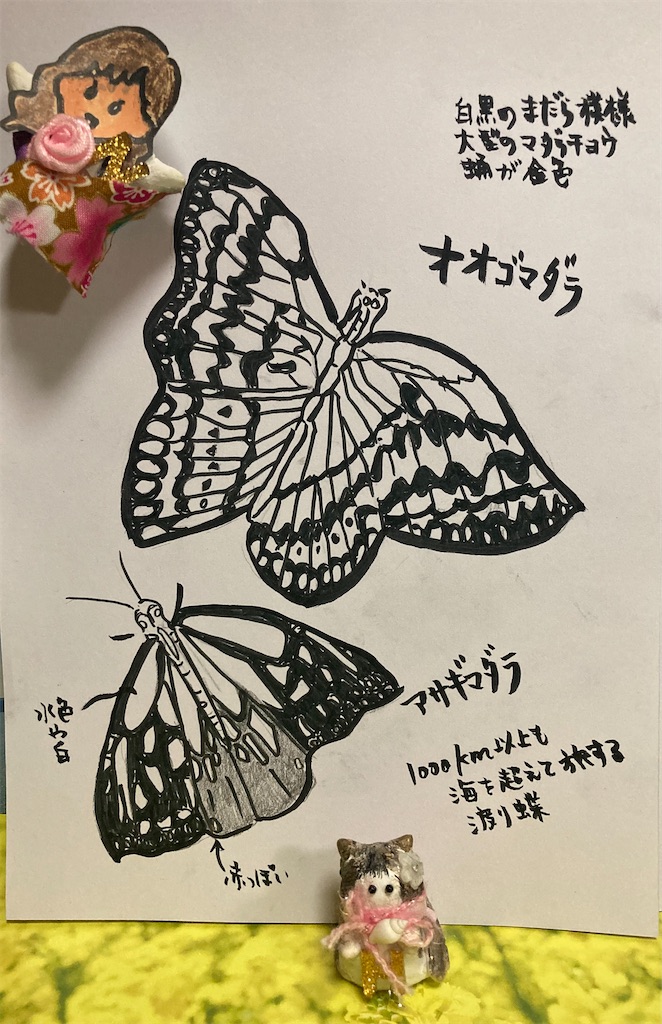 白黒のまだら模様
大型のマダラチョウ
蛹が金色
オオゴマダラ
アサギマダラ
水色
や
白
1000km以上も
海を超えて旅する
渡り蝶
赤っぽい